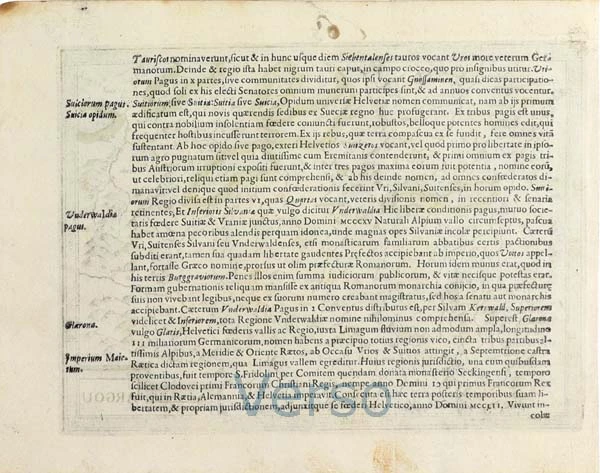 Tauriscos nominaverunt, sicut & in hunc usque diem Siebentalenses tauros vocant Uros more veterum Ger-
manorum. Deinde & regio ista habet nigrum tauri caput, in campo croceo, quo pro insignibus utitur. Uri-
otum Pagus in x partes, sive communitates dividitur, quos ipsi vocant Gnossamen, quasi dicas participatio-
nes, quod soli ex his electi Senatores omnium munerum participes sint, & ad annuos conventus vocentur.
Suiciorum pagus.
Suicia opidum.
Suitiorum, sive Suitia: Suitia sive Suicia, Opidum universæ Helvetiæ nomen communicat, nam ab ijs primum
ædificatum est, qui novis quærendis sedibus ex Sueciæ regno huc profugerant. Ex tribus pagis est unus,
qui contra nobilium insolentiam fœdere conjuncta fuerunt, robustos, bellosque potentes homines edit, qui
frequenter hostibus incusserunt terrorem. Ex ijs rebus, quæ terra compascua ex se fundit, fere omnes vitã
sustentant. Ab hoc opido sive pago, exteri Helvetios Suitzeros vocant, vel quod primo pro libertate in ipso-
rum agro pugnatum sit vel quia diutissime cum Eremitanis contenderunt, & primi omnium ex pagis tri-
bus Austriorum irruptioni expositi fuerunt, & inter tres pagos maxima eorum fuit potentia, nomine eorũ,
ut celebriori, reliqui etiam pagi sunt comprehensi, & ab his deinde nomen, ad omnes confœderatos di-
manavit vel denique quod initium confœderationis fecerint Vri, Silvani, Suitenses, in horum opido. Suiti-
orum Regio divisa est in partes VI, quas Quarta vocant, veteris divisionis nomen, in recentiori & senaria
Vnderwaldiæ
pagus.
retinentes. Et Inferioris Silvaniæ quæ vulgo dicitur Vnderwaldia Hic liberæ conditionis pagus, mutuo socie-
tatis fœdere Suitiæ & Vraniæ junctus, anno Domini MCCCXV Naturali Alpium vallo circumseptus, pascua
habet amœna pecoribus alendis perquam idonea, unde magnas opes Silvaniæ incolæ percipiunt. Cæterũ
Vri, Suitenses Silvani seu Vnderwaldenses, etsi monasticarum familiarum abbatibus certis pactionibus
subditi erant, tamen sua quadam libertate gaudentes Præfectos accipiebant ab imperio, quos Votos appel-
lant, fortasse Græco nomine, prorsus ut olim præfecturæ Romanorum. Horum idem munus erat, quod in
his tertiis Burggraviorum. Penes illos enim summa judiciorum publicorum, & vitæ necisque potestas erat.
Formam gubernationis reliquam mansisse ex antiqua Romanorum monarchia conjicio, in qua præfecturæ
suis non vivebant legibus, neque ex suorum numero creabant magistratus, sed hos a senatu aut monarcha
accipiebant. Cæterum Vndualdia Pagus in 2 Conventus distributus est, per Silvam Kernwald, Superiorem
Glarona.
videlicet & Inferiorem, tota Regione Vndwaldiæ nomine nihilominus comprehensa. Superest Glarona
vulgo Glaris, Helvetici fœderis vallis ac Regio, juxta Limagum fluvium non admodum ampla, longitudine
III milliariorum Germanicorum, nomen habens a præcipuo totius regionis vico, cincta tribus partibus al-
Imperium Maio-
rum.
tissimis Alpibus, a Meridie & Oriente Rætos, ab Occasu Vrios & Suitios attingit, a Septemtrione castra
Rætica dictam regionem, qua Limagus vallem egreditur. Hujus regionis jurisdictio, una cum quibusdam
proventibus, fuit tempore S. Fridolini per Comitem quendam donata monasterio Seckingensi, tempore
scilicet Clodovei primi Francorum Christiani Regis, tempore anno Domini 15 qui primus Francorum Rex
fuit, qui in Rætia, Alemannia, & Helvetia
libertatem, & propriam jurisdictionem, adjunxitque se fœderi Helvetico, anno Domini MCCCLII. Vivunt in-
colæ
Verso